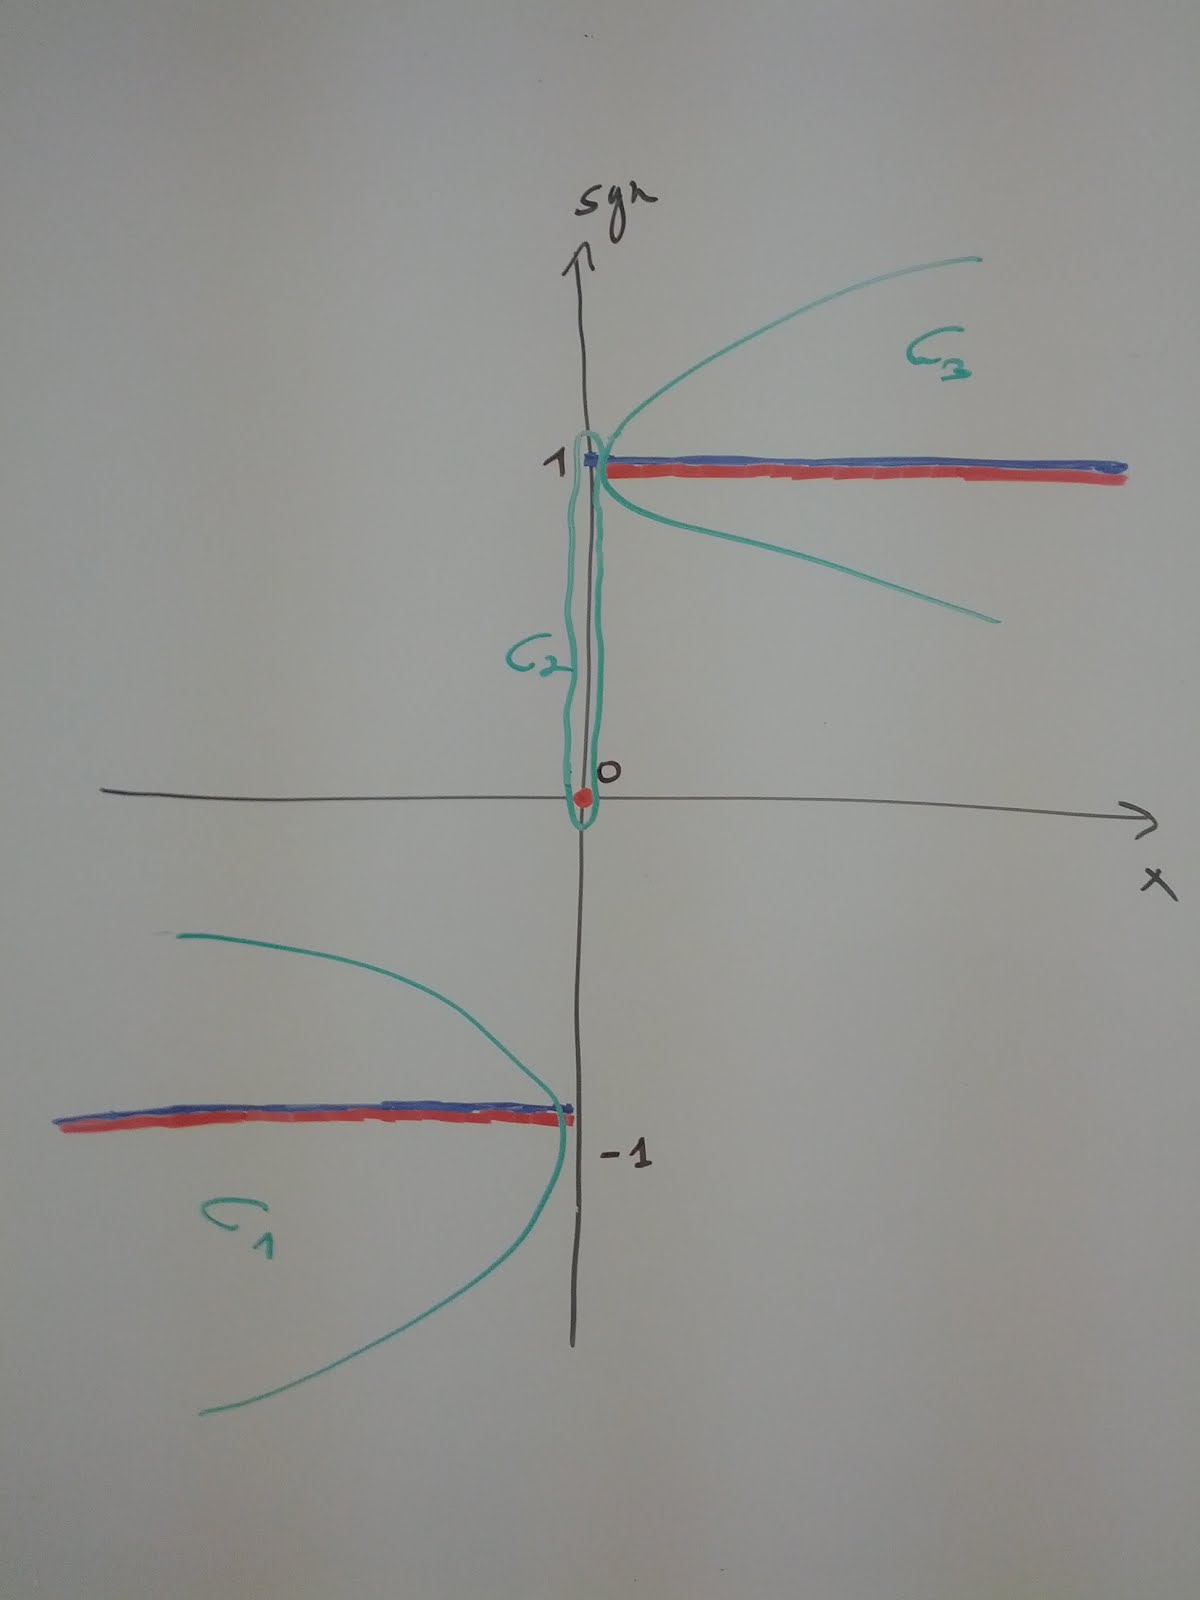 sgn
C3
1
C2
0
x
-1
C1